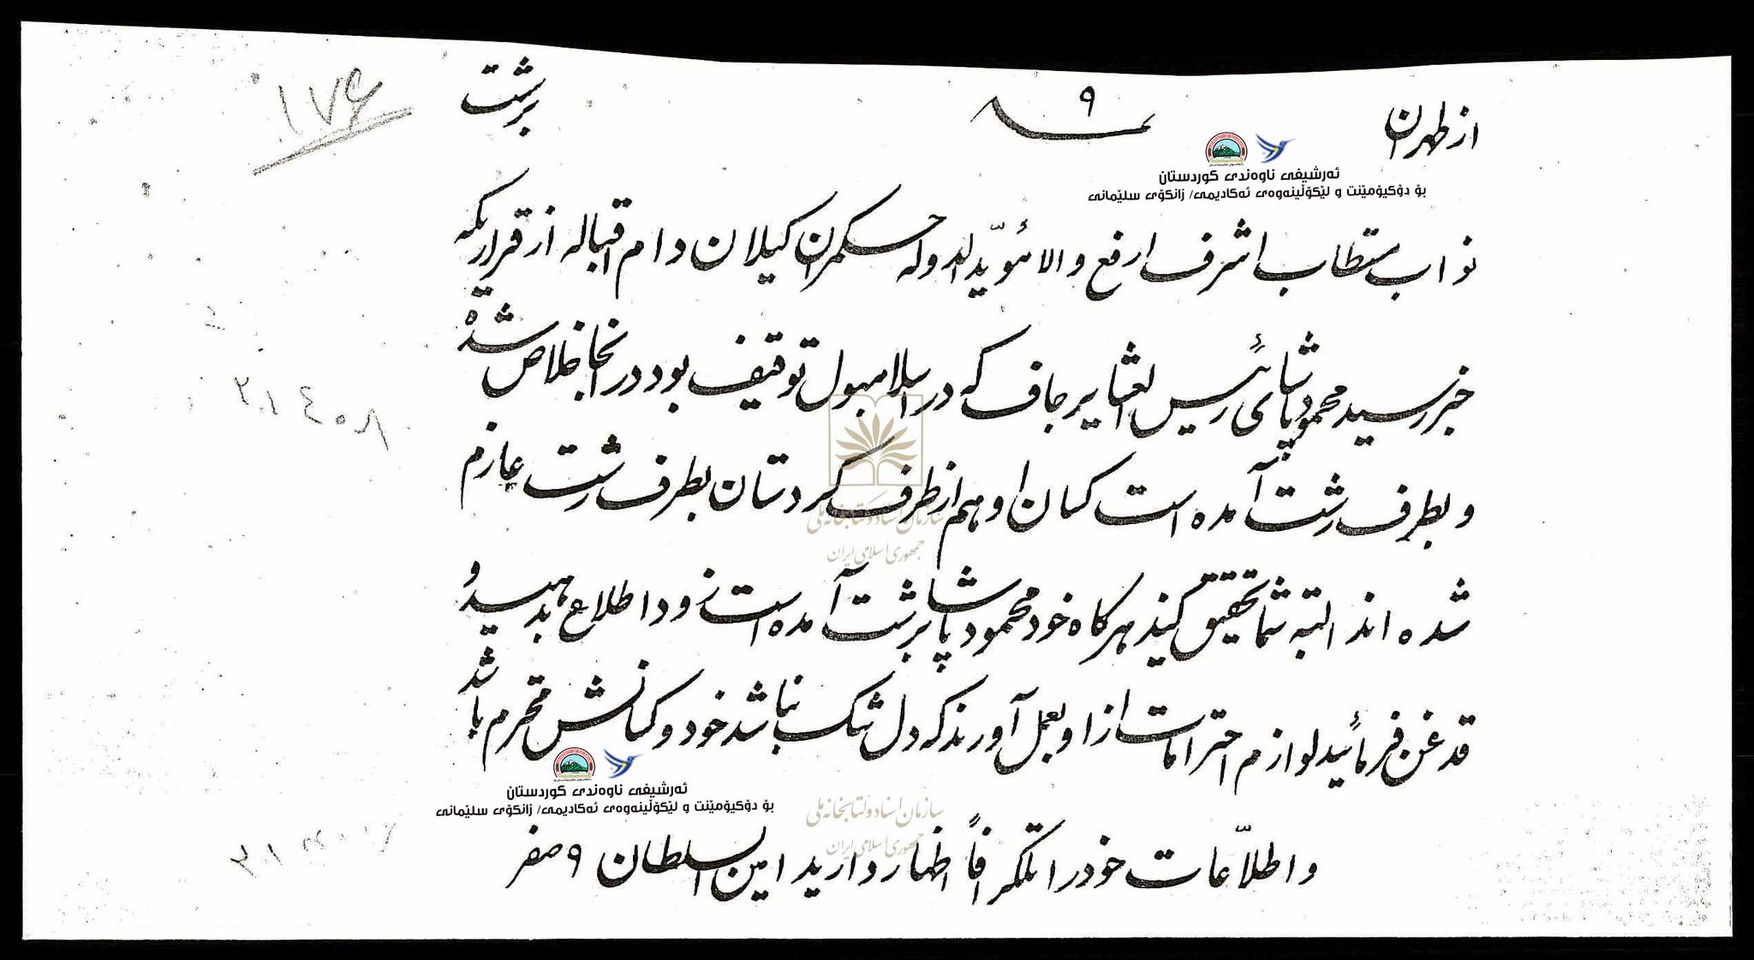 از طهران
نمره ۹
برشت
۱۷۶
ئەرشیفی ناوەندی کوردستان
بۆ دۆکیۆمێنت و لێکۆڵینەوەی ئەکادیمی/ زانکۆی سلێمانی
نواب مستطاب اشرف ارفع والا مؤیّدالدوله حکمران کیلان دام اقباله از قراریکه
خبر رسید محمود پاشای رئیس العشایر جاف که در اسلامبول توقیف بود در انجا خلاص شده
و بطرف رشت آمده است کسان او هم از طرف کردستان بطرف رشت عازم
شده اند البته شما تحقیق کنید هرکاه خود محمود پاشا برشت آمده است زود اطلاع بدهید و
قدغن فرمائید لوازم احترامات از او بعمل آورند که دل تنک نباشد خود و کسانش محترم باشد
و اطلاّعات خود را تلکرافاً اظهار دارید امین السلطان ۹ صفر
ئەرشیفی ناوەندی کوردستان
بۆ دۆکیۆمێنت و لێکۆڵینەوەی ئەکادیمی/ زانکۆی سلێمانی
سازمان اسناد و کتابخانه ملی
جمهوری اسلامی ایران
سازمان اسناد و کتابخانه ملی
جمهوری اسلامی ایران